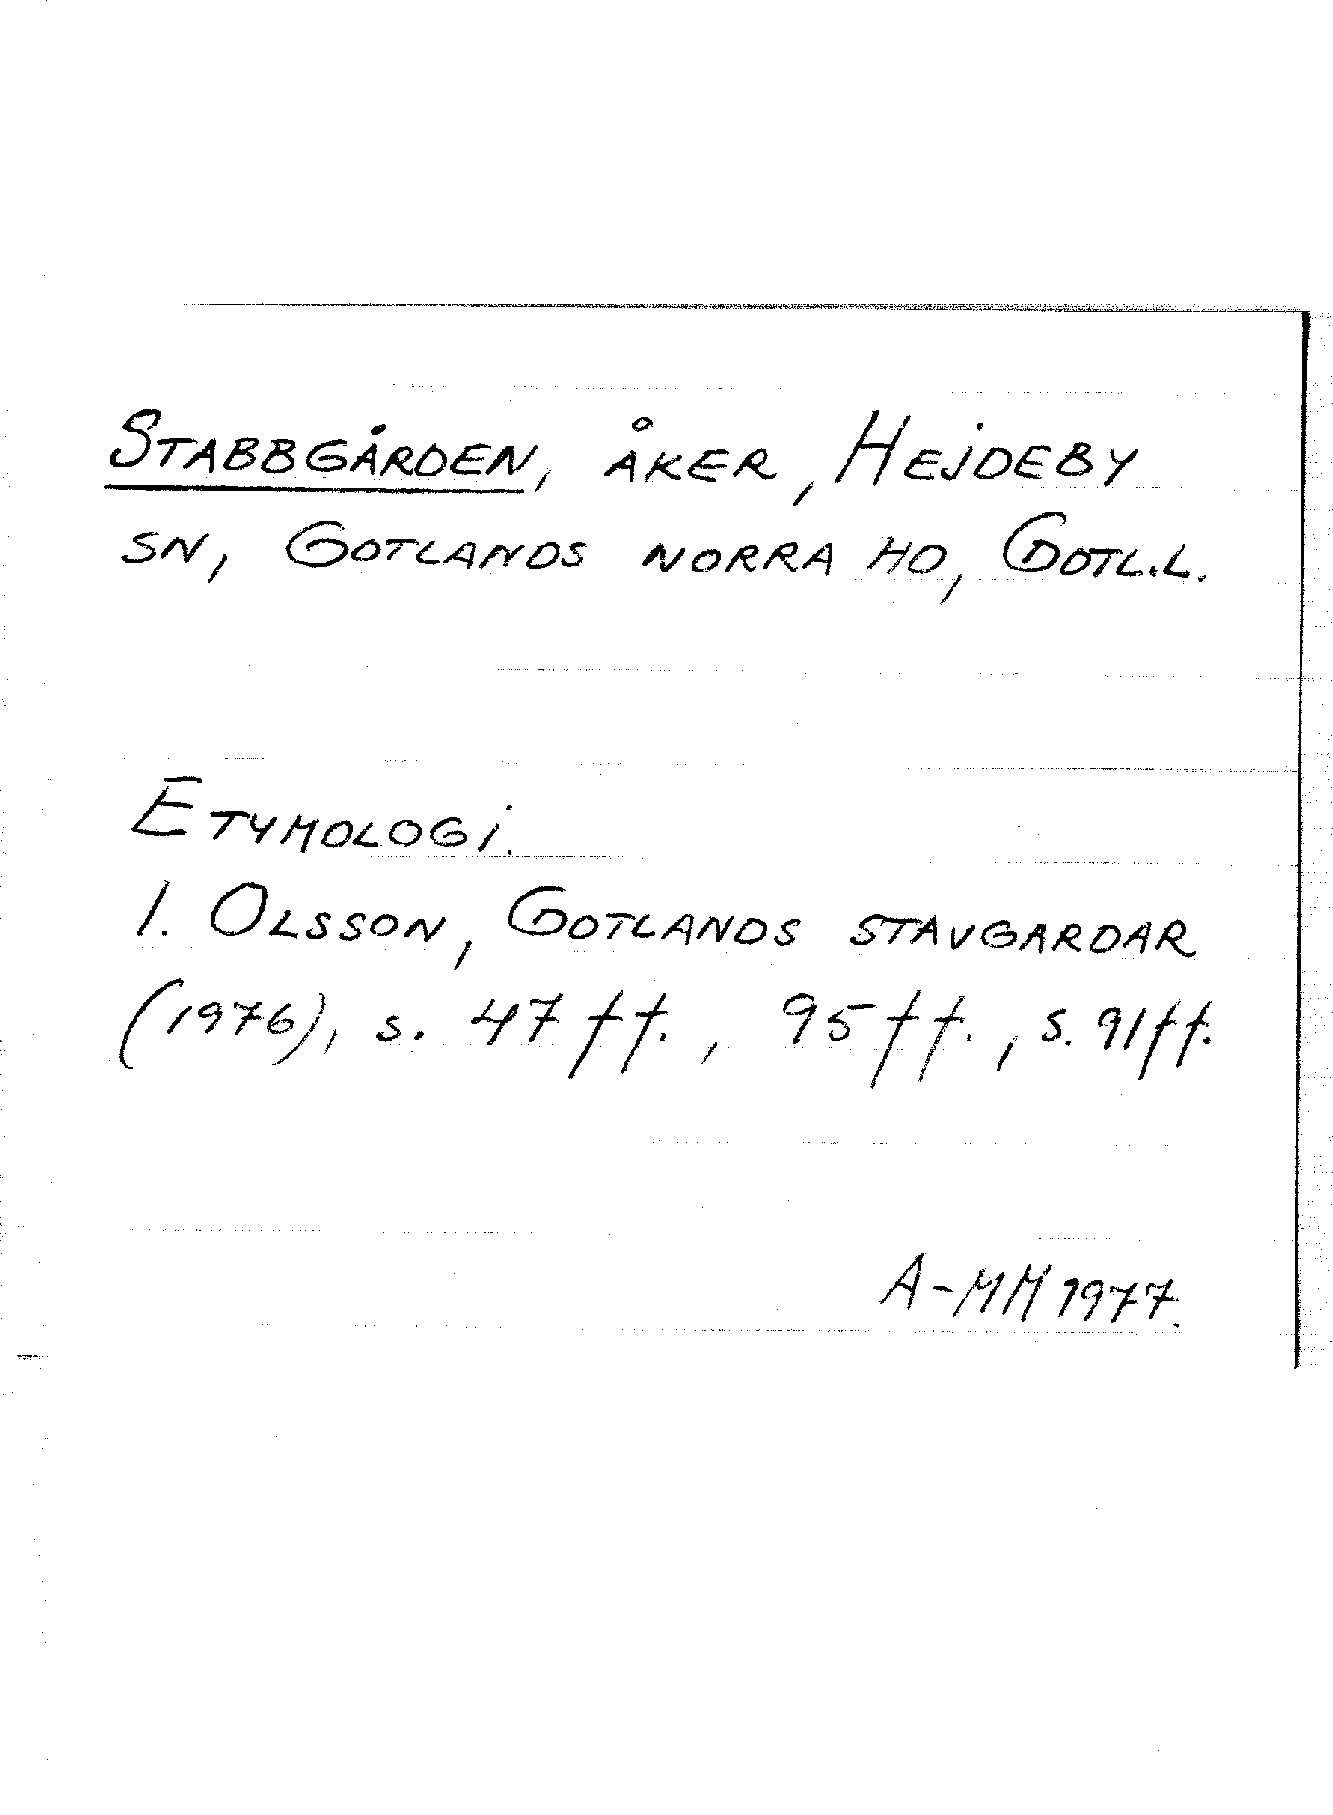 STABBGÅRDEN, ÅKER, HEJDEBY
SN, GOTLANDS NORRA HD, GOTL.L.
ETYMOLOGI.
I. OLSSON, GOTLANDS STAVGARDAR
(1976), s. 47 ff., 95 ff., s. 91 ff.
A-MM 1977.